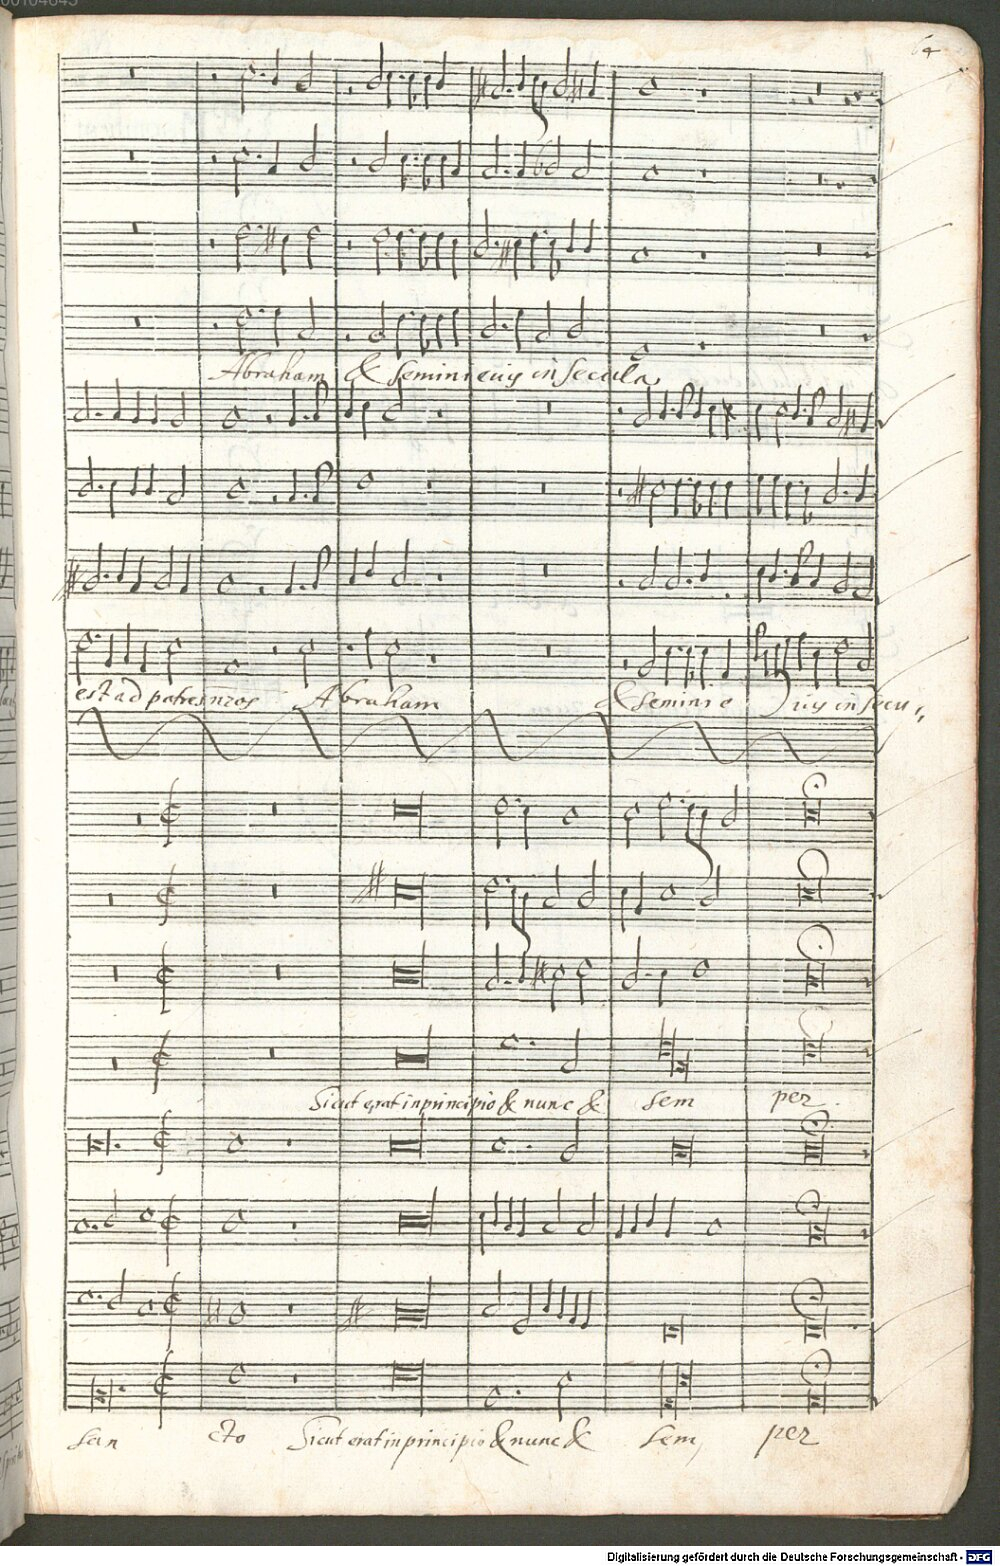 00104645
64
Abraham & semini eius in secula
est ad patres nros Abraham & semini e ius in secu
Sicut erat in principio & nunc & sem per.
san cto Sicut erat in principio & nunc & sem per
Digitalisierung gefördert durch die Deutsche Forschungsgemeinschaft - DFG